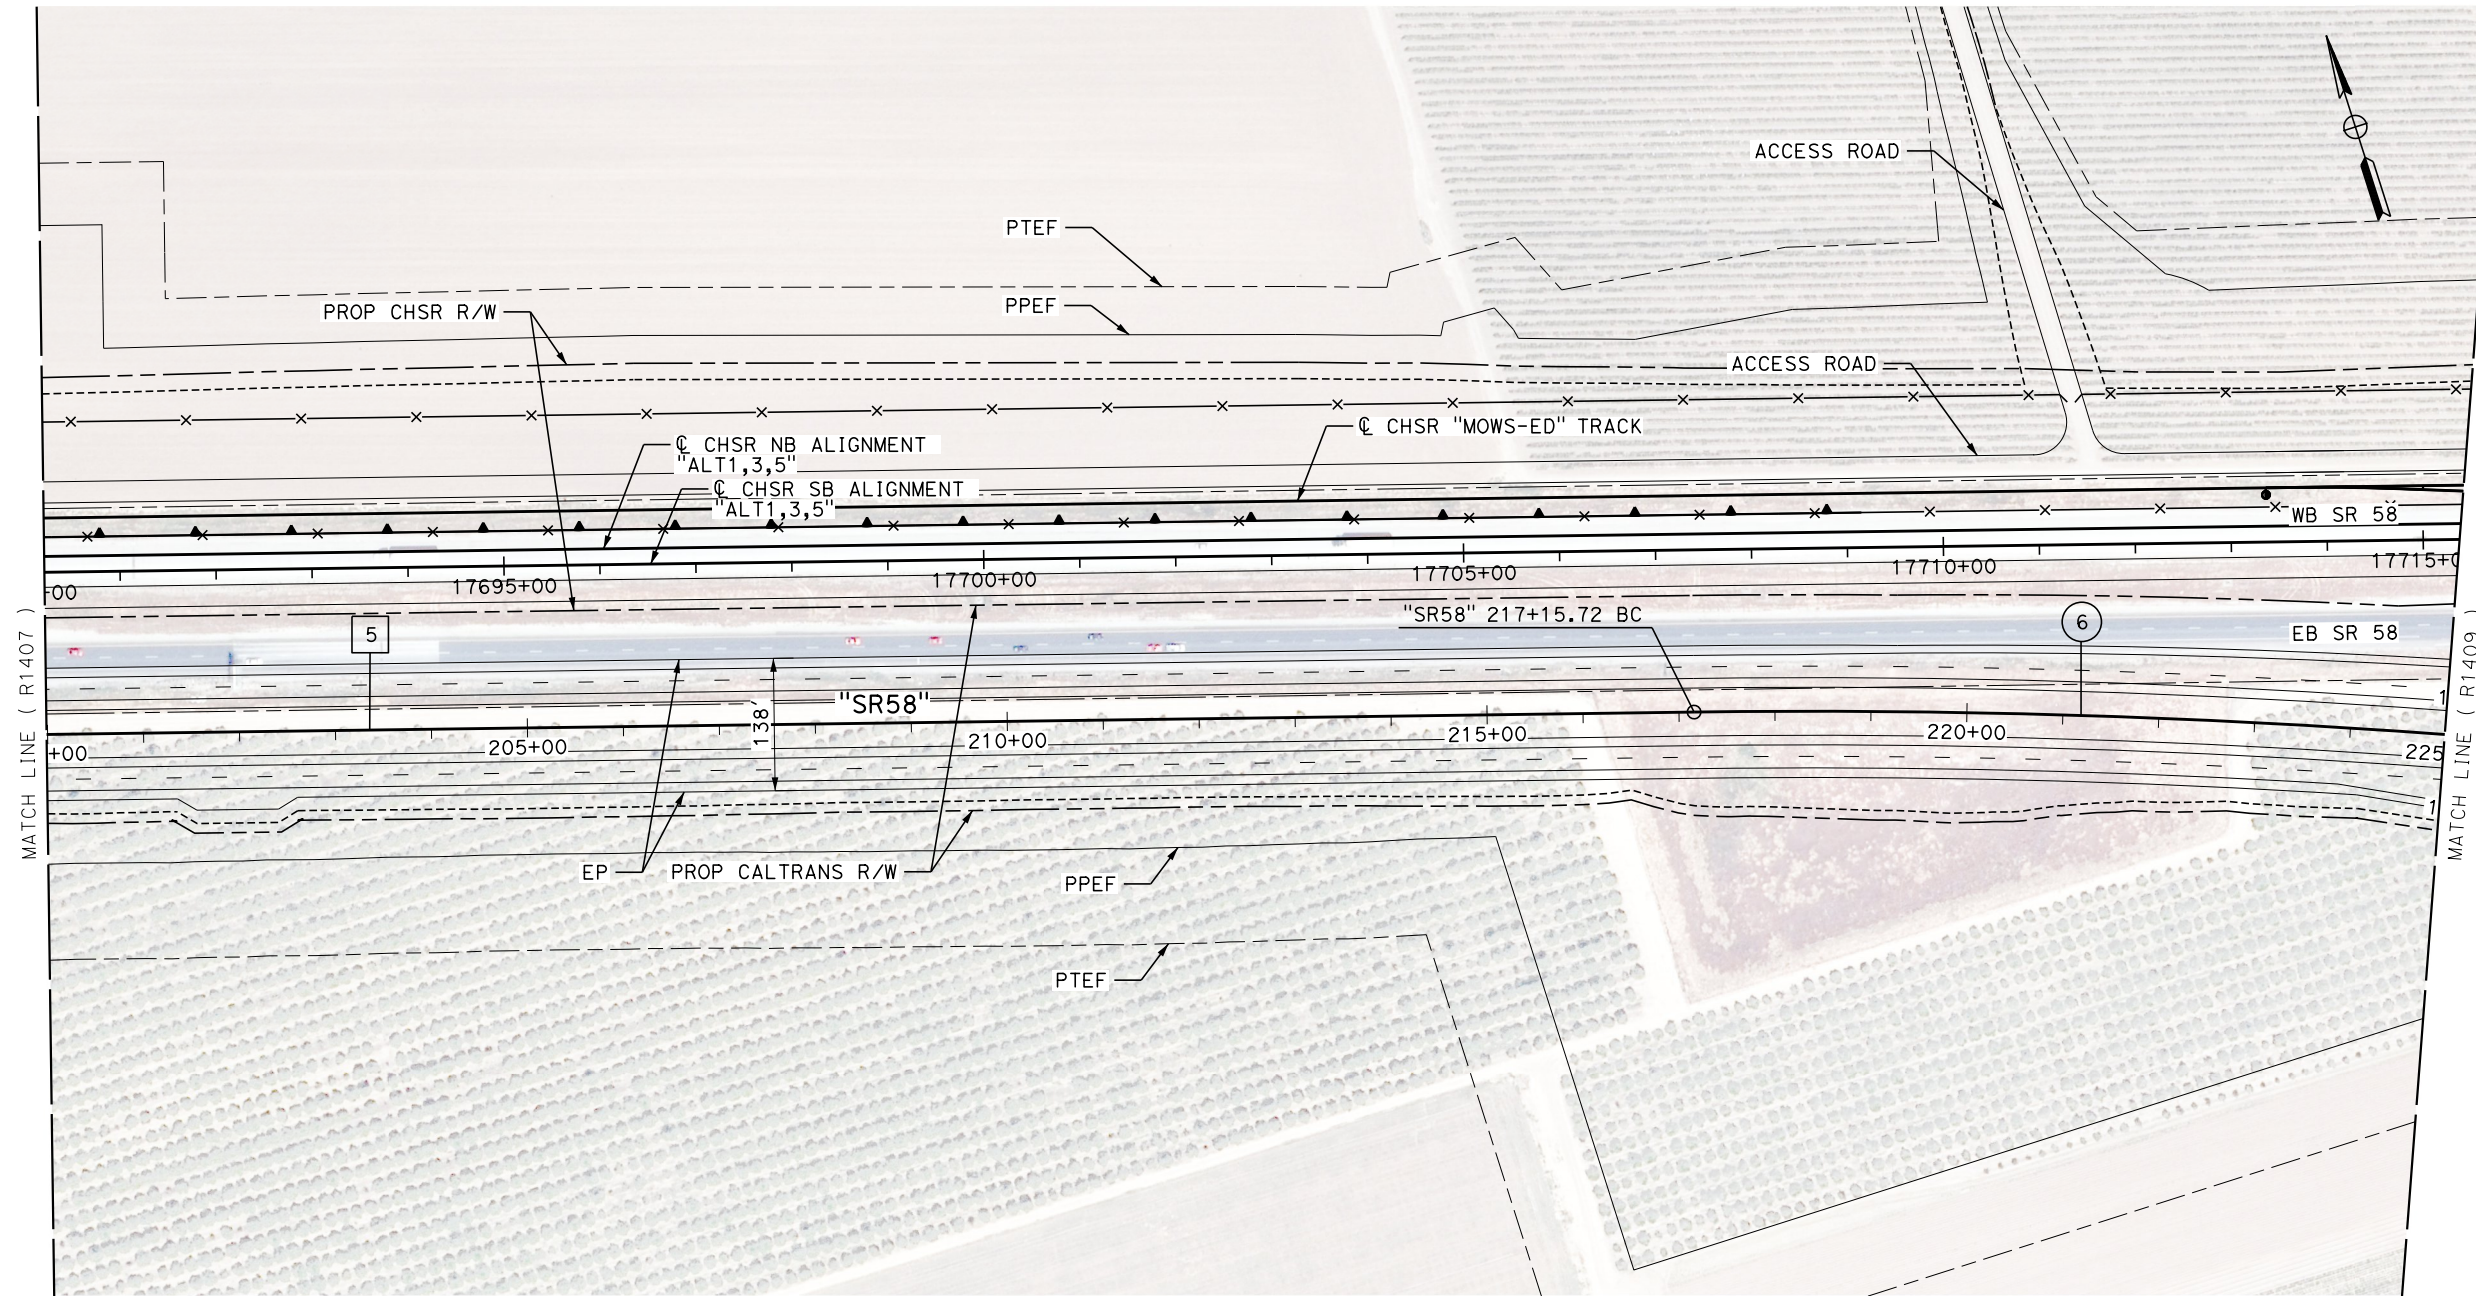 ACCESS ROAD
PTEF
PPEF
PROP CHSR R/W
ACCESS ROAD
℄ CHSR "MOWS-ED" TRACK
℄ CHSR NB ALIGNMENT
"ALT1,3,5"
℄ CHSR SB ALIGNMENT
"ALT1,3,5"
WB SR 58
+00
17695+00
17700+00
17705+00
17710+00
17715+0
"SR58" 217+15.72 BC
5
6
EB SR 58
MATCH LINE ( R1407 )
MATCH LINE ( R1409 )
"SR58"
138
1
+00
205+00
210+00
215+00
220+00
225
1
EP
PROP CALTRANS R/W
PPEF
PTEF